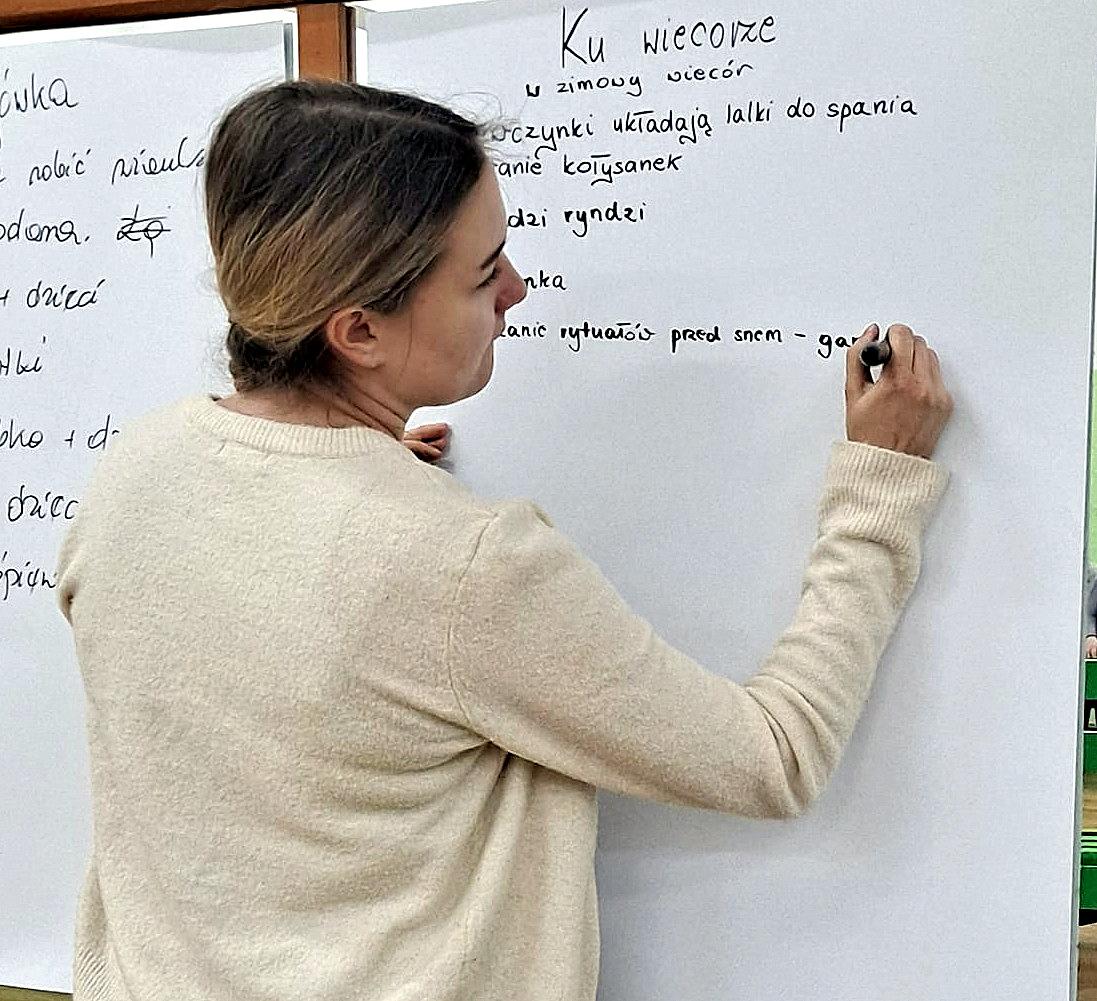 ówka
robić
odoma. 
+ dzieci
lki
bko + d
dziec
Ku wiecorze
w zimowy wiecór
czynki układają lalki do spania
anie kołysanek
dzi ryndzi
nka
anie rytuałów przed snem - ga
A